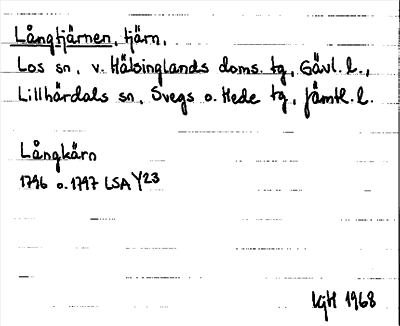 Långtjärnen, tjärn,
Los sn, v. Hälsinglands doms. tg, Gävl. l.,
Lillhärdals sn, Svegs o. Hede tg, Jämtl. l.
Långkärn
1796 o. 1797 LSA Y23
KjH 1968